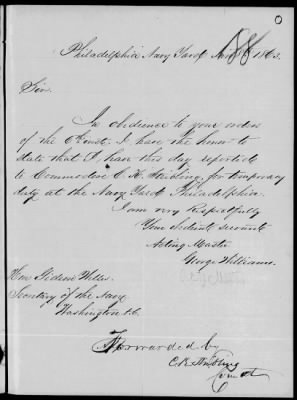 Philadelphia Navy Yard 1863.
Sir.
In obedience to your orders
of the 6th inst. I have the honor to
state that I have this day reported
to Commodore C. K. Stribling for temporary
duty at the Navy Yard Philadelphia.
I am very Respectfully
Your obedient servant
Acting Master
George Williams
Hon Gideon Welles
Secretary of the Navy
Washington D.C.
Forwarded by
C K Stribling
Comdt